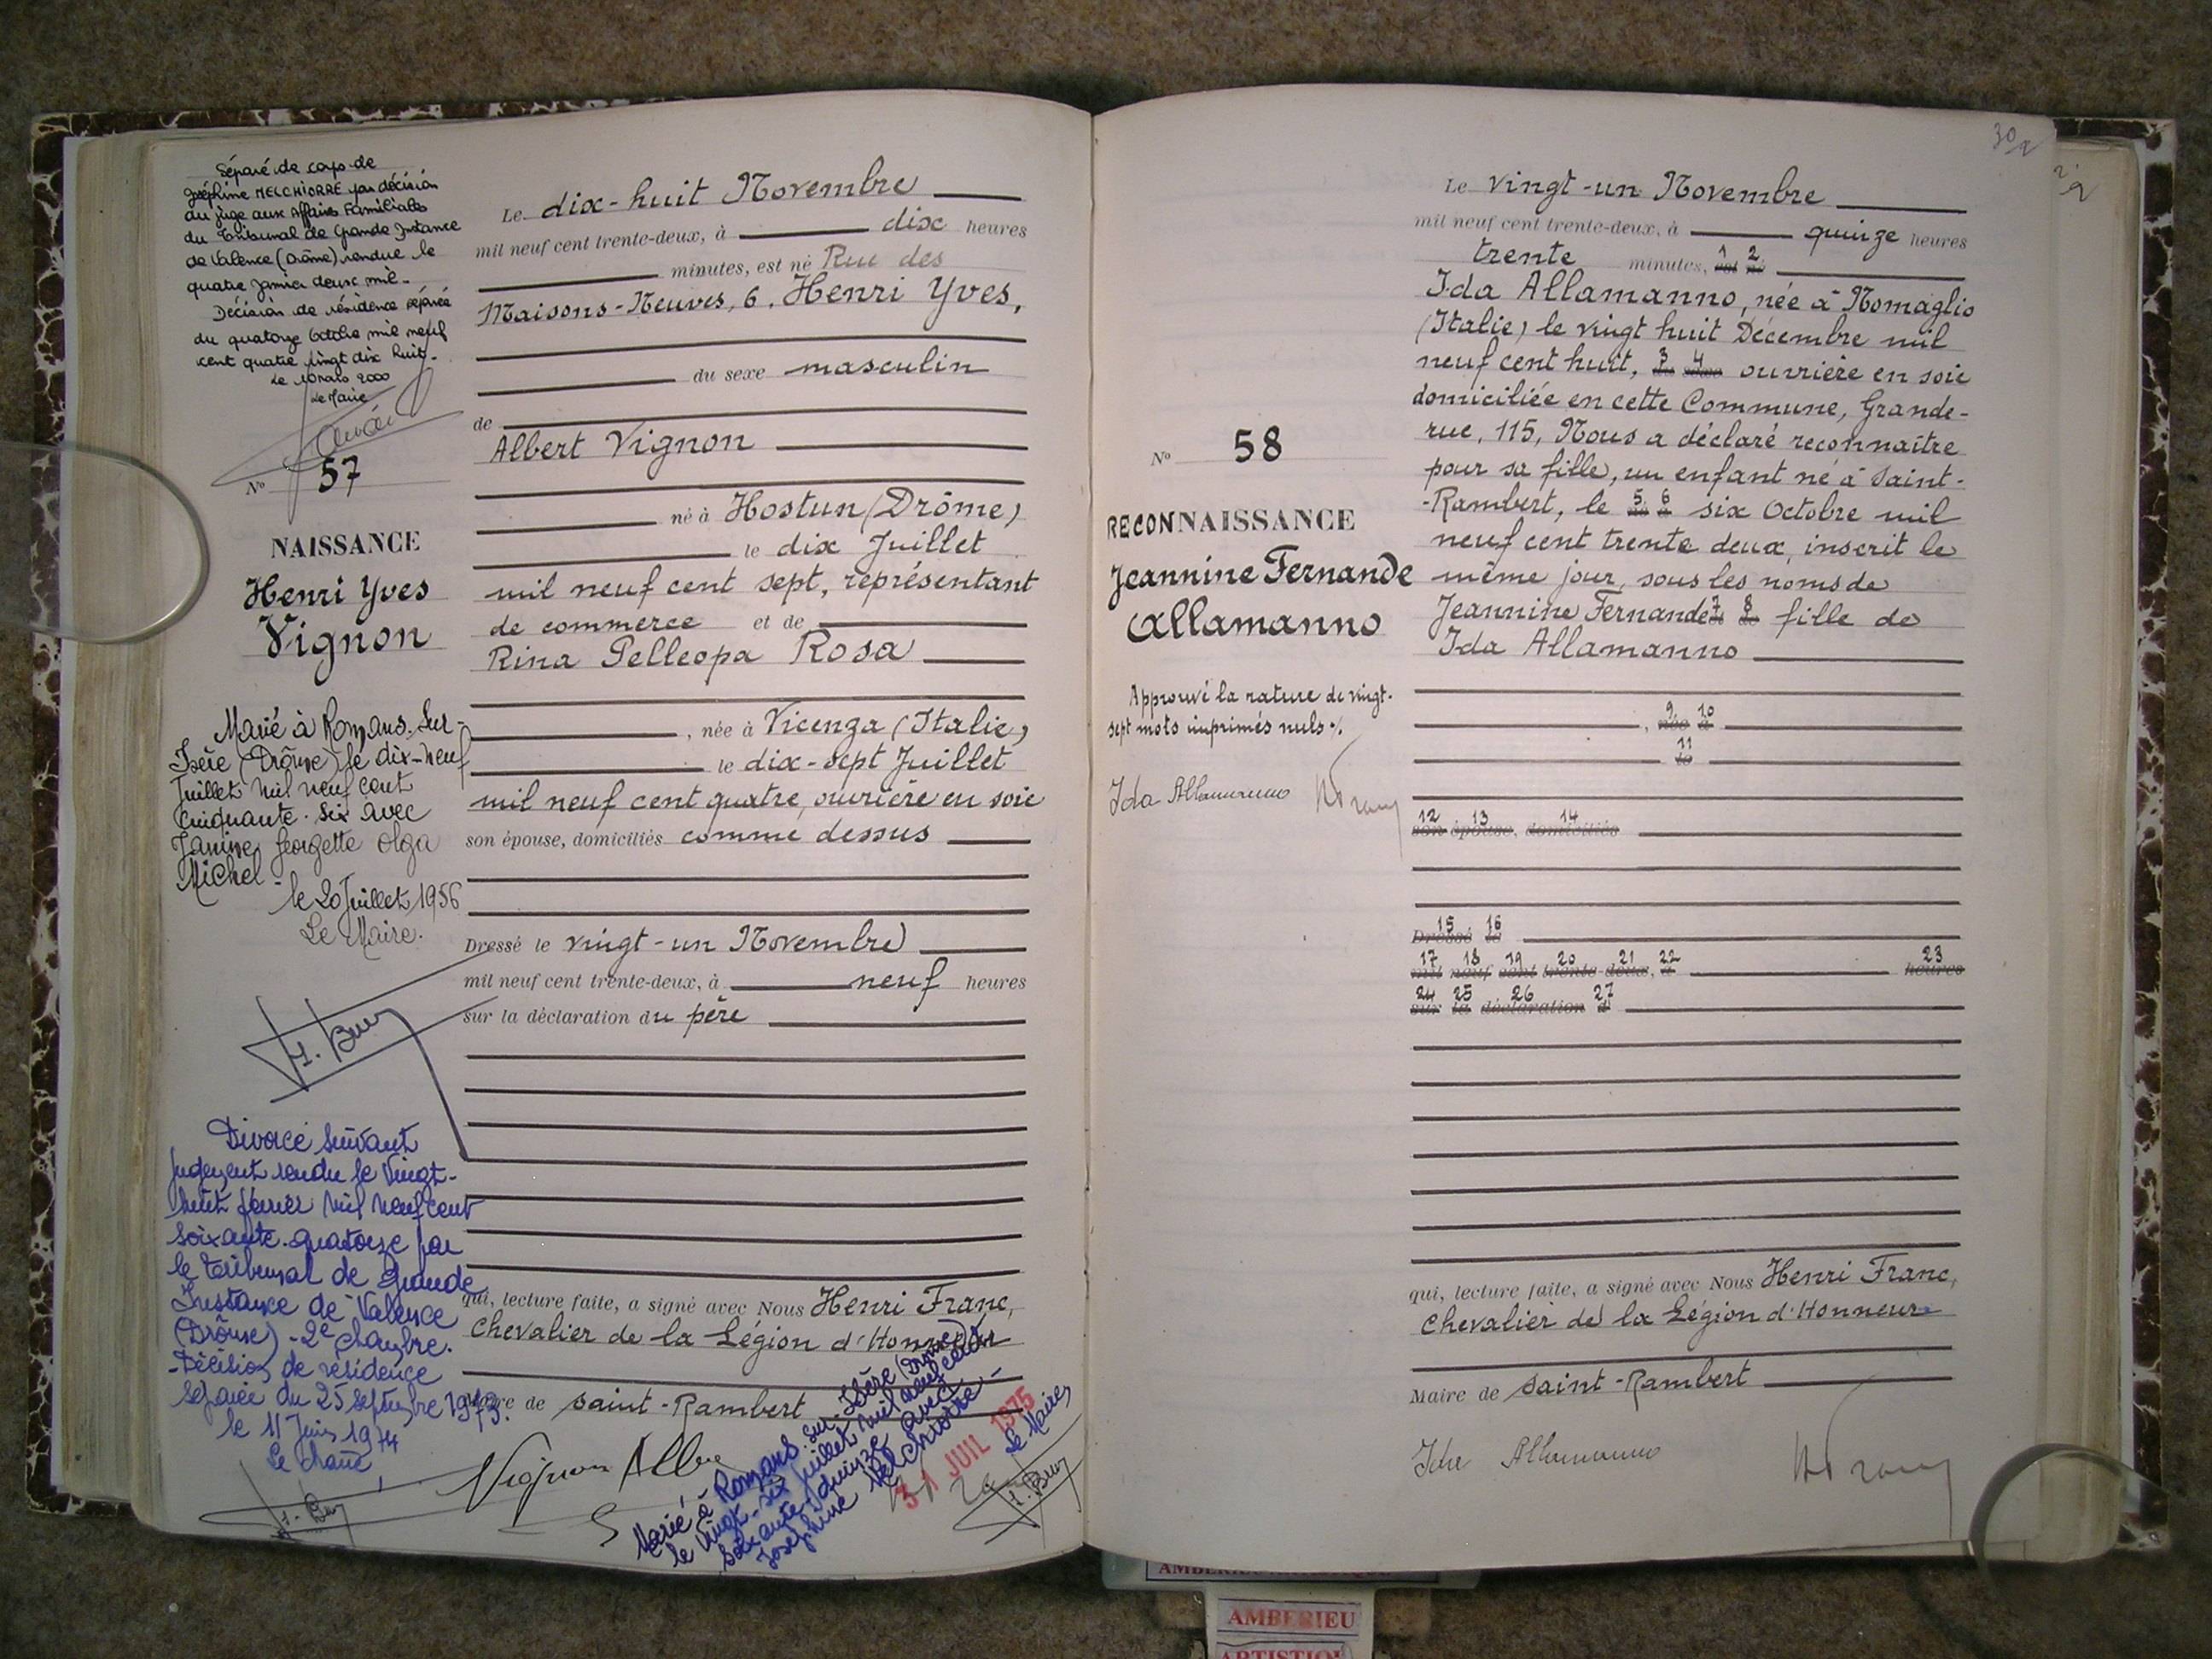 Séparé de corps de
Joséphine MELCHIORRE par décision
du juge aux Affaires Familiales
du Tribunal de Grande Instance
de Valence (Drôme) rendue le
quatre janvier deux mil.
Décision de résidence séparée
du quatorze Octobre mil neuf
cent quatre vingt dix huit.
Le 10 mars 2000
Le Maire
No 57
NAISSANCE
Henri Yves
Vignon
Marié à Romans-Sur-
Isère (Drôme) le dix-neuf
Juillet mil neuf cent
cinquante-six avec
Janine Georgette Olga
Michel
le 20 Juillet 1956
Le Maire.
Divorcé suivant
jugement rendu le vingt-
huit février mil neuf cent
soixante-quatorze par
le tribunal de Grande
Instance de Valence
(Drôme) - 2e chambre.
- Décision de résidence
séparée du 25 septembre 1973.
le 11 Juin 1974
Le Maire
Le dix-huit Novembre
mil neuf cent trente-deux, à dix heures
minutes, est né Rue des
Maisons-Neuves, 6, Henri Yves,
du sexe masculin
de
Albert Vignon
né à Hostun (Drôme)
le dix Juillet
mil neuf cent sept, représentant
de commerce et de
Rina Pelleopa Rosa
, née à Vicenza (Italie)
le dix-sept Juillet
mil neuf cent quatre, ouvrière en soie
son épouse, domiciliés comme dessus
Dressé le vingt-un Novembre
mil neuf cent trente-deux, à neuf heures
sur la déclaration du père
qui, lecture faite, a signé avec Nous Henri Franc,
Chevalier de la Légion d'Honneur
Maire de Saint-Rambert
Vignon
Marié à Romans-sur-Isère (Drôme)
le vingt-six juillet mil neuf cent
soixante-quinze avec
Joséphine Melchiorre -
31 JUIL 1975
Le Maire
30
No 58
RECONNAISSANCE
Jeannine Fernande
Allamanno
Approuvé la rature de vingt-
sept mots imprimés nuls ./.
Ida Allamanno
Le vingt-un Novembre
mil neuf cent trente-deux, à quinze heures
trente minutes, 1 2
Ida Allamanno, née à Nomaglio
(Italie) le vingt huit Décembre mil
neuf cent huit, 3 4 ouvrière en soie
domiciliée en cette Commune, Grande-
rue, 115, Nous a déclaré reconnaître
pour sa fille, un enfant né à Saint-
-Rambert, le 5 6 six Octobre mil
neuf cent trente deux, inscrit le
même jour, sous les noms de
Jeannine Fernande 7 8 fille de
Ida Allamanno
, 9 10 née à
11 le
12 13 14 son épouse, domiciliés
15 16 Dressé le
17 18 19 20 21 22 23 mil neuf cent trente-deux, à heures
24 25 26 27 sur la déclaration d
qui, lecture faite, a signé avec Nous Henri Franc,
Chevalier de la Légion d'Honneur
Maire de Saint-Rambert
Ida Allamanno
AMBERIEU